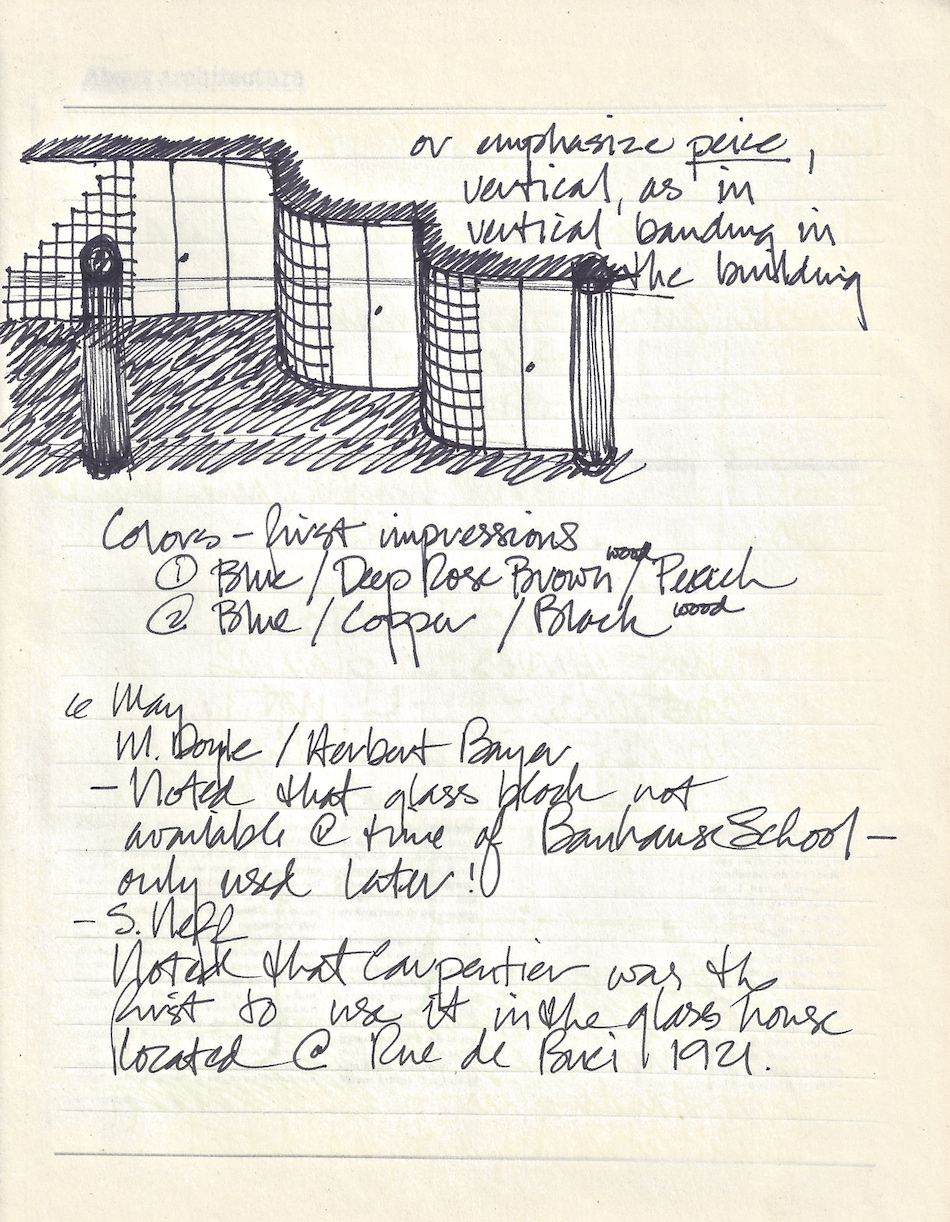 or emphasize peice,
vertical, as in
vertical banding in
the building
Colors - first impressions
① Blue / Deep Rose Brown wood / Peach
② Blue / Copper / Black wood
May
M. Doyle / Herbert Bayer
- Noted that glass block not
available @ time of Bauhaus School -
only used later!
- S. Neff
Noted that Carpentier was the
first to use it in the glass house
located @ Rue de Buci, 1921.